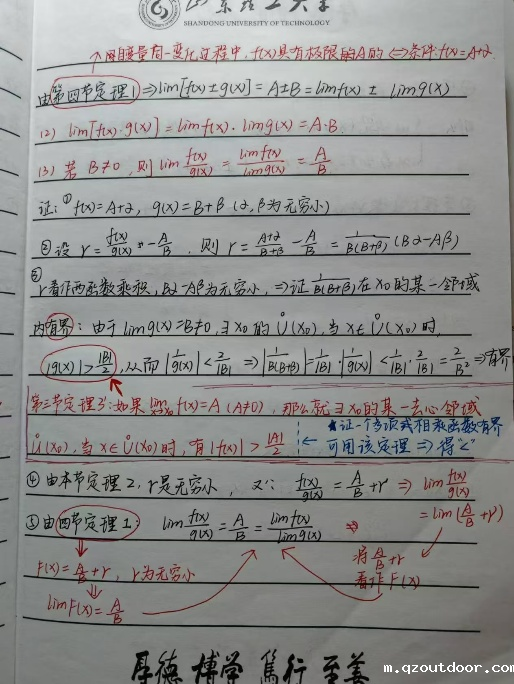 山东理工大学
SHANDONG UNIVERSITY OF TECHNOLOGY
↑ 同自变量同一变化过程中, f(x)具有极限的A的 ⇔ 条件: f(x)=A+α
由第四节定理1 ⇒ lim[f(x)±g(x)] = A±B = limf(x) ± limg(x)
(2) lim[f(x)·g(x)] = limf(x)·limg(x) = A·B
(3) 若 B≠0, 则 lim f(x)/g(x) = limf(x)/limg(x) = A/B
证: ① f(x)=A+α, g(x)=B+β (α,β为无穷小)
② 设 r = f(x)/g(x) - A/B, 则 r = (A+α)/(B+β) - A/B = 1/(B(B+β)) (Bα-Aβ)
③
r看作两函数乘积, Bα-Aβ为无穷小, ⇒ 证 1/(B(B+β)) 在 x0 的某一邻域
内有界: 由于 limg(x)=B≠0, ∃ x0 的 Ů(x0), 当 x∈Ů(x0) 时,
|g(x)| > |B|/2, 从而 |1/g(x)| < 2/|B| ⇒ |1/(B(B+β))| = 1/|B|·|1/g(x)| < 1/|B|·2/|B| = 2/B² ⇒ 有界
第三节定理3': 如果 lim f(x)=A (A≠0), 那么就∃x0的某一去心邻域
Ů(x0), 当 x∈Ů(x0)时, 有|f(x)| > |A|/2
★证一个多项式相乘函数有界
可用该定理 ⇒ 得"<"
④ 由本节定理2, r是无穷小, 又∵ f(x)/g(x) = A/B + r ⇒ lim f(x)/g(x)
= lim(A/B + r)
③ 由四节定理1: lim f(x)/g(x) = A/B = limf(x)/limg(x) ⇒
将 A/B + r
看作 F(x)
F(x) = A/B + r, r为无穷小
limF(x) = A/B
厚德 博学 笃行 至善
m.qzoutdoor.com